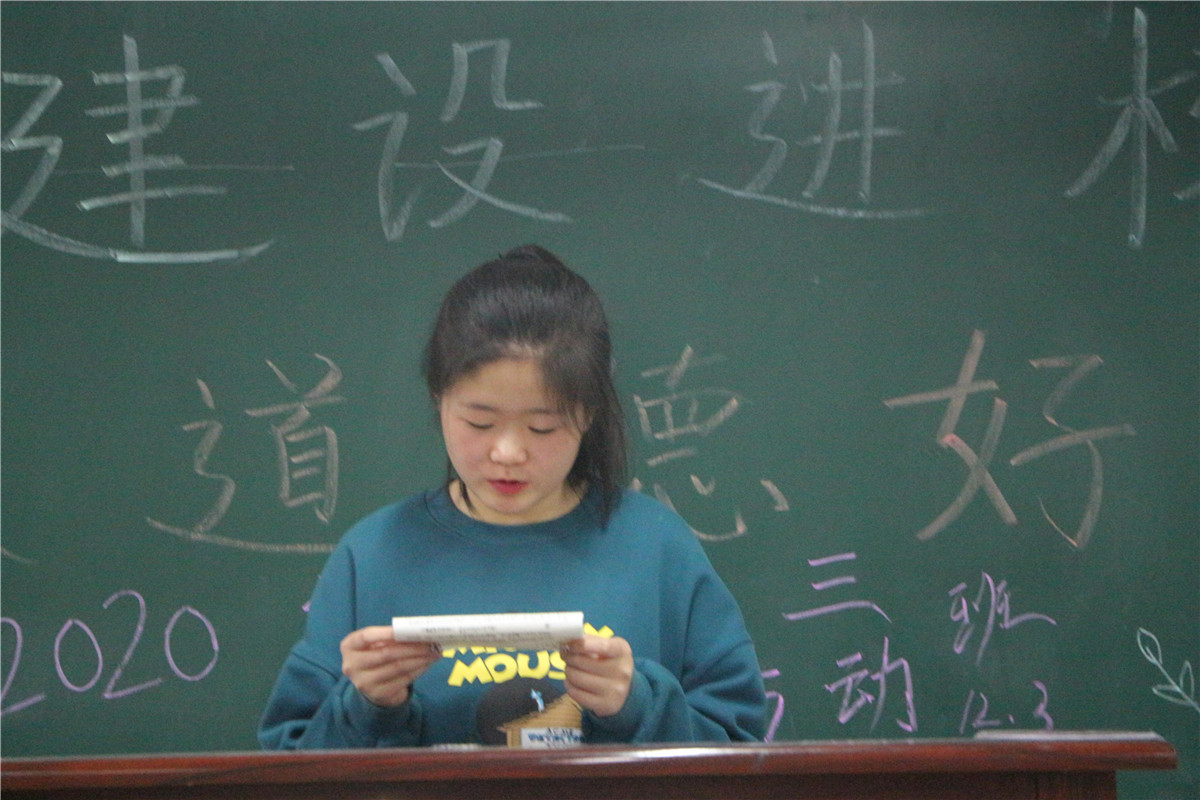 建设进校
道德好
2020 三班
活动 12.3
MICKEY
MOUSE